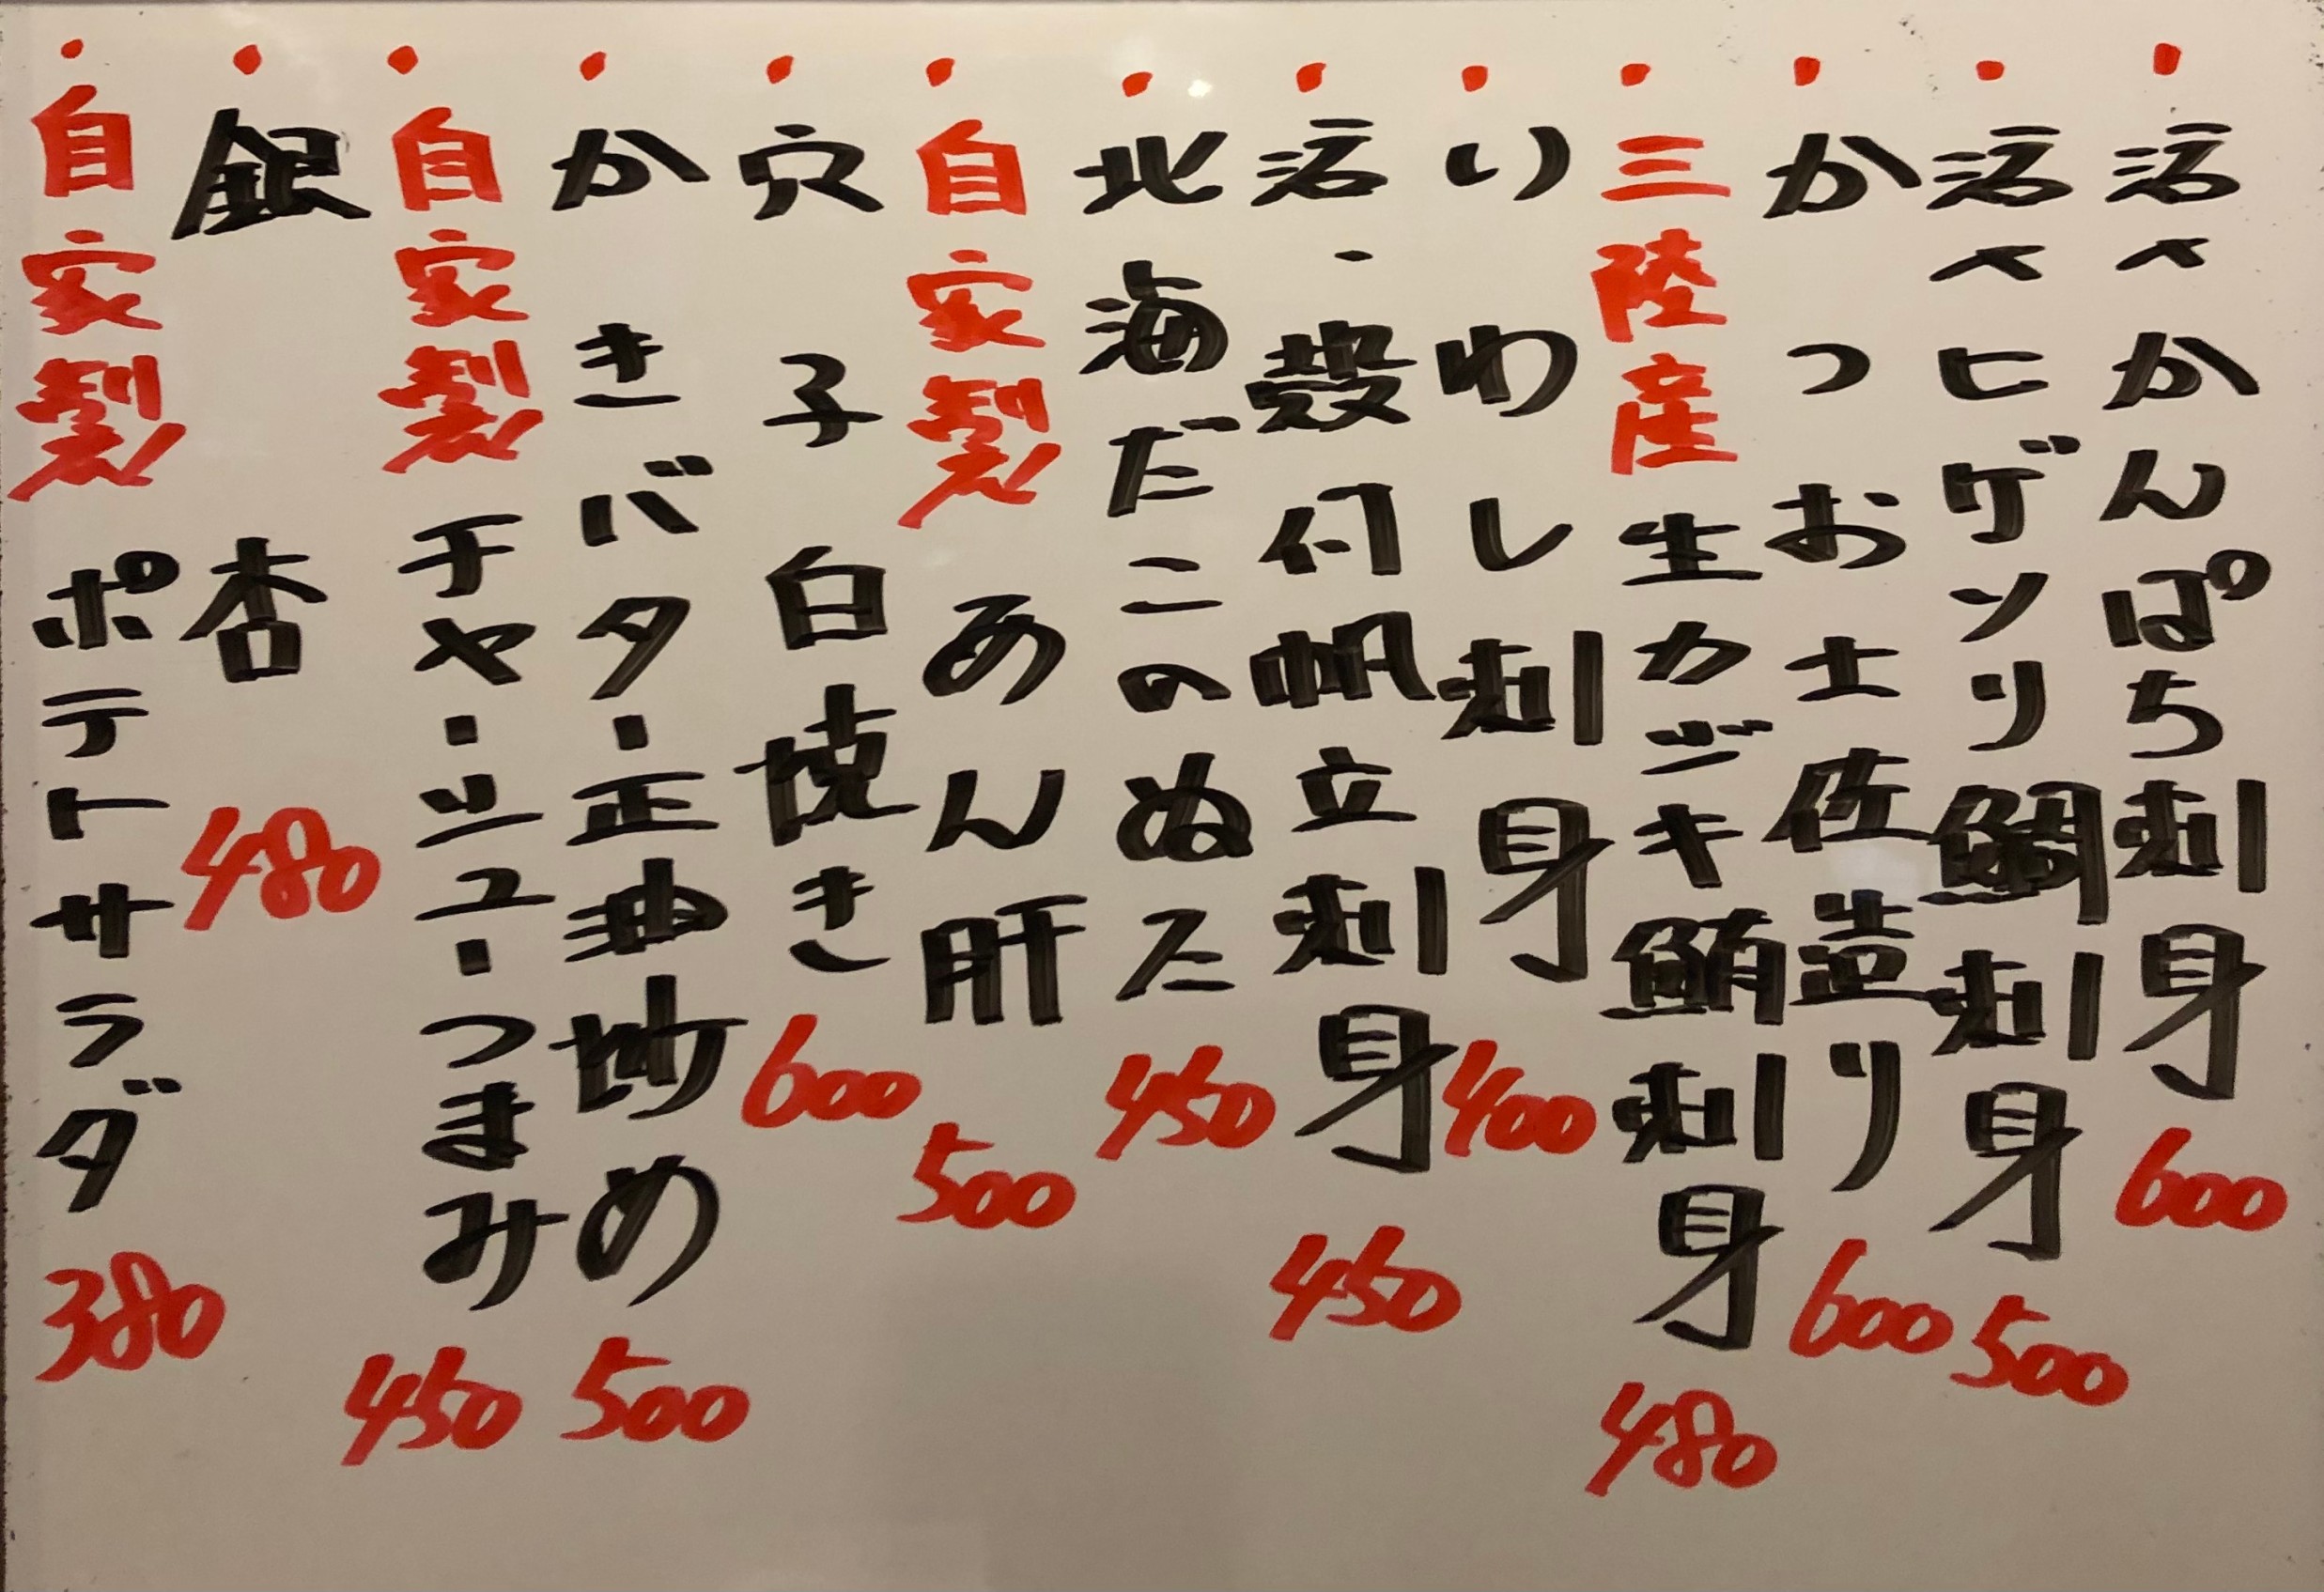 ・活〆かんぱち刺身 600
・活〆ヒゲソリ鯛刺身 500
・かつお土佐造り 600
・三陸産生カジキ鮪刺身 480
・いわし刺身 400
・活・殻付帆立刺身 450
・北海だこのぬた 450
・自家製あん肝 500
・穴子白焼き 600
・かきバター正油炒め 500
・自家製チャーシューつまみ 450
・銀杏 480
・自家製ポテトサラダ 380